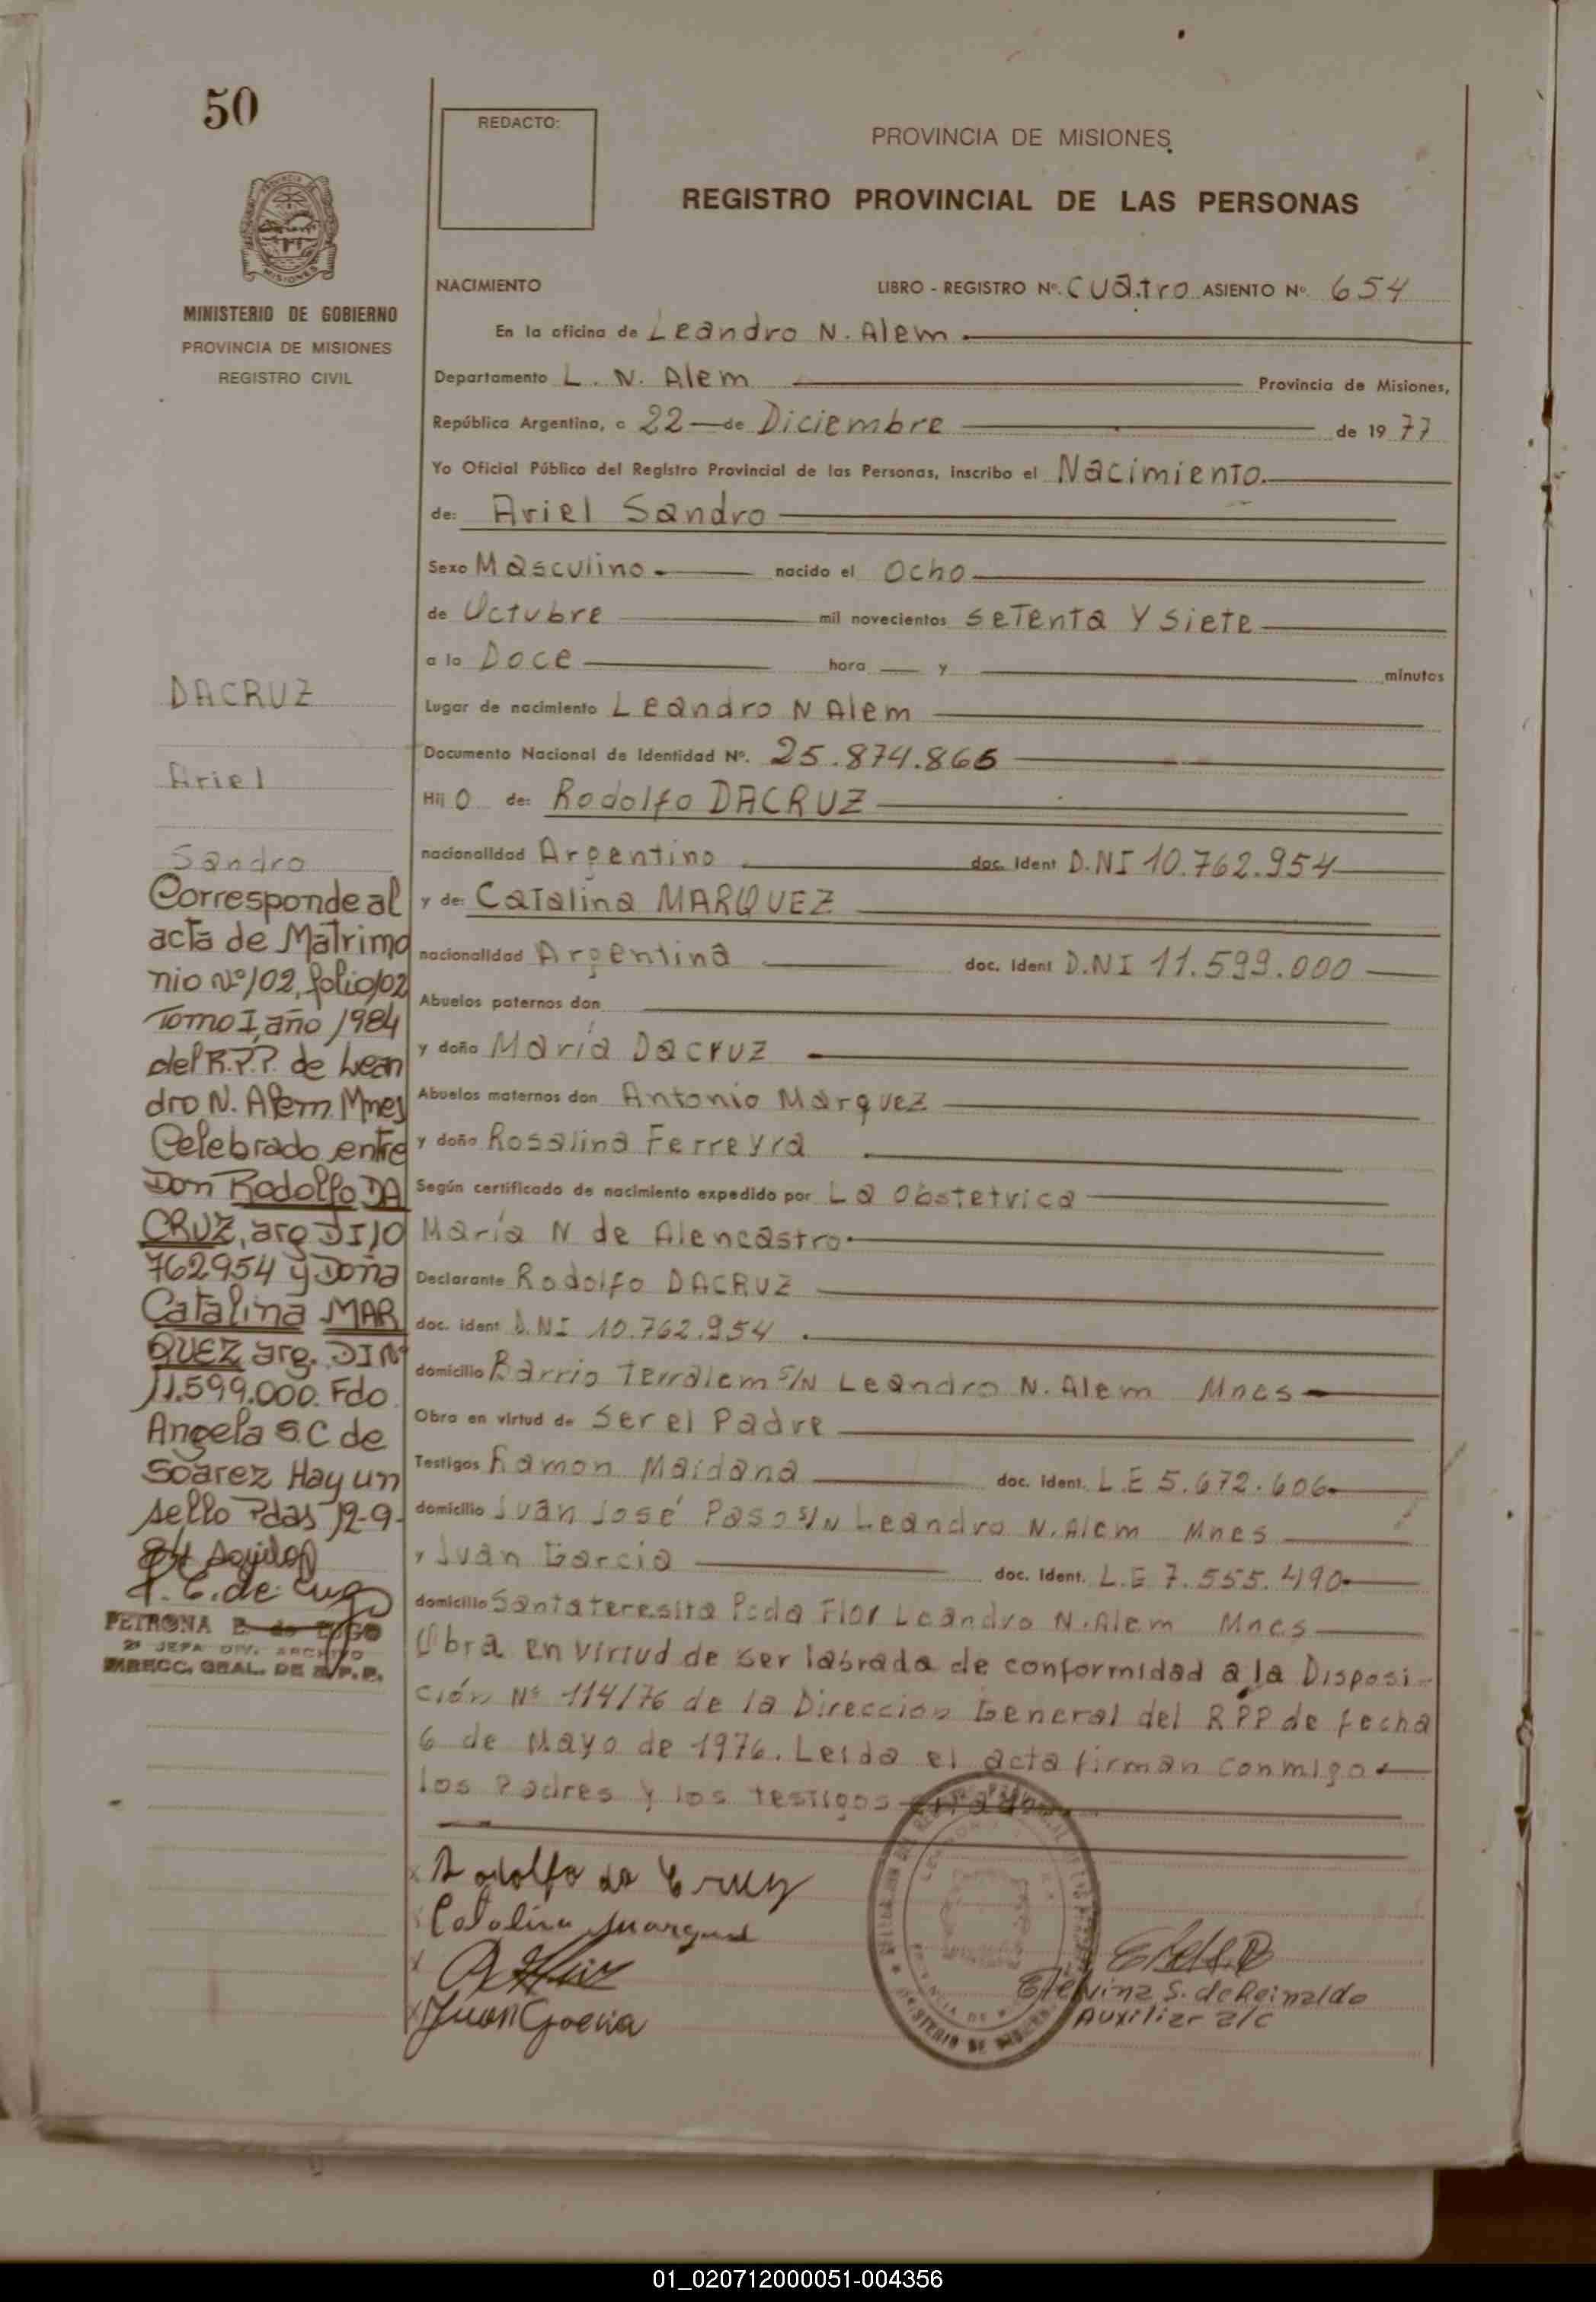 50
REDACTO:
PROVINCIA DE MISIONES
REGISTRO PROVINCIAL DE LAS PERSONAS
MINISTERIO DE GOBIERNO
PROVINCIA DE MISIONES
REGISTRO CIVIL
NACIMIENTO
LIBRO - REGISTRO Nº. Cuatro ASIENTO Nº. 654
En la oficina de Leandro N. Alem
Departamento L. N. Alem Provincia de Misiones,
República Argentina, a 22 de Diciembre de 1977
Yo Oficial Público del Registro Provincial de las Personas, inscribo el Nacimiento.
de: Ariel Sandro
Sexo Masculino nacido el Ocho
de Octubre mil novecientos seTenta Y Siete
a la Doce hora y minutos
Lugar de nacimiento Leandro N Alem
Documento Nacional de Identidad Nº. 25.874.865
Hij o de: Rodolfo DACRUZ
nacionalidad Argentino doc. Ident D.NI 10.762.954
y de: Catalina MARQUEZ
nacionalidad Argentina doc. Ident D.NI 11.599.000
Abuelos paternos don
y doña María Dacruz
Abuelos maternos don Antonio Marquez
y doña Rosalina Ferreyra
Según certificado de nacimiento expedido por La Obstetrica
María N de Alencastro
Declarante Rodolfo DACRUZ
doc. ident D.NI 10.762.954
domicilio Barrio Terralem S/N Leandro N. Alem Mnes
Obra en virtud de Ser el Padre
Testigos Ramon Maidana doc. ident. L.E 5.672.606
domicilio Juan José Paso S/N Leandro N. Alem Mnes
y Juan Garcia doc. Ident. L.E 7.555.490
domicilio Santateresita Pcda Flor Leandro N. Alem Mnes
Obra en virtud de ser labrada de conformidad a la Disposi-
ción Nº 114/76 de la Direccion General del RPP de fecha
6 de Mayo de 1976. Leida el acta firman conmigo
los Padres y los testigos
DACRUZ
Ariel
Sandro
Corresponde al
acta de Matrimo
nio Nº 102, folio 102
Tomo I, año 1984
del R.P.P. de Lean
dro N. Alem Mnes
Celebrado entre
Don Rodolfo DA
CRUZ, arg DI 10
762954 y Doña
Catalina MAR
QUEZ arg. DI Nº
11.599.000. Fdo
Angela S.C de
Soarez Hay un
sello Pdas 12-9-
84
P. E. de Lugo
PETRONA E. de LUGO
2ª JEFA DIV. ARCHIVO
DIRECC. GRAL. DE R.P.P.
Rodolfo da Cruz
Catalina Marquez
Juan Garcia
Etelvina S. de Reinaldo
Auxiliar a/c
01_020712000051-004356